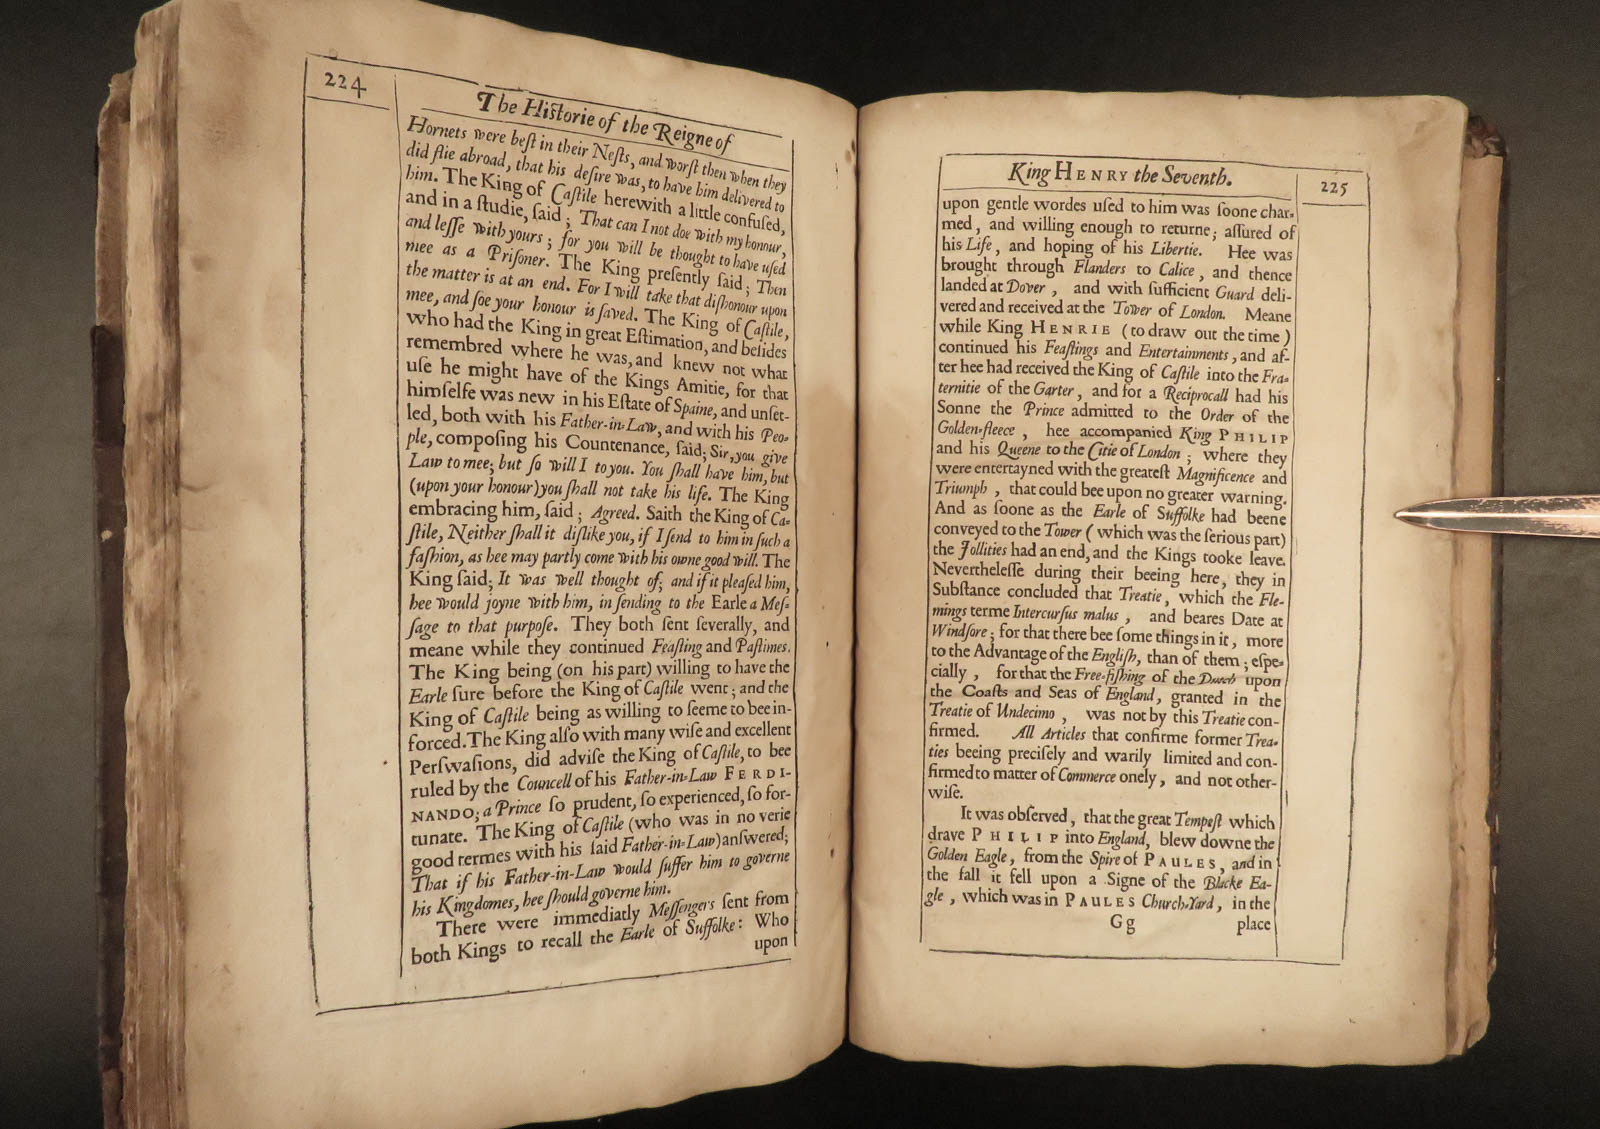 224
The Historie of the Reigne of
Hornets were beſt in their Neſts, and worſt then when they
did flie abroad, that his deſire was, to have him delivered to
him. The King of Caſtile herewith a little confuſed,
and in a ſtudie, ſaid; That can I not doe with my honour,
and leſſe with yours; for you will be thought to have uſed
mee as a Priſoner. The King preſently ſaid; Then
the matter is at an end. For I will take that diſhonour upon
mee, and ſoe your honour is ſaved. The King of Caſtile,
who had the King in great Eſtimation, and beſides
remembred where he was, and knew not what
uſe he might have of the Kings Amitie, for that
himſelfe was new in his Eſtate of Spaine, and unſet-
led, both with his Father-in-Law, and with his Peo-
ple, compoſing his Countenance, ſaid; Sir, you give
Law to mee; but ſo will I to you. You ſhall have him, but
(upon your honour) you ſhall not take his life. The King
embracing him, ſaid; Agreed. Saith the King of Ca-
ſtile, Neither ſhall it diſlike you, if I ſend to him in ſuch a
faſhion, as hee may partly come with his owne good will. The
King ſaid; It was well thought of; and if it pleaſed him,
hee would joyne with him, in ſending to the Earle a Meſ-
ſage to that purpoſe. They both ſent ſeverally, and
meane while they continued Feaſting and Paſtimes.
The King being (on his part) willing to have the
Earle ſure before the King of Caſtile went; and the
King of Caſtile being as willing to ſeeme to bee in-
forced. The King alſo with many wiſe and excellent
Perſwaſions, did adviſe the King of Caſtile, to bee
ruled by the Councell of his Father-in-Law FERDI-
NANDO; a Prince ſo prudent, ſo experienced, ſo for-
tunate. The King of Caſtile (who was in no verie
good termes with his ſaid Father-in-Law) anſwered;
That if his Father-in-Law would ſuffer him to governe
his Kingdomes, hee ſhould governe him.
There were immediatly Meſſengers ſent from
both Kings to recall the Earle of Suffolke: Who
upon
King HENRY the Seventh.
225
upon gentle wordes uſed to him was ſoone char-
med, and willing enough to returne; aſſured of
his Life, and hoping of his Libertie. Hee was
brought through Flanders to Calice, and thence
landed at Dover, and with ſufficient Guard deli-
vered and received at the Tower of London. Meane
while King HENRIE (to draw out the time)
continued his Feaſtings and Entertainments, and af-
ter hee had received the King of Caſtile into the Fra-
ternitie of the Garter, and for a Reciprocall had his
Sonne the Prince admitted to the Order of the
Golden-fleece, hee accompanied King PHILIP
and his Queene to the Citie of London; where they
were entertayned with the greateſt Magnificence and
Triumph, that could bee upon no greater warning.
And as ſoone as the Earle of Suffolke had beene
conveyed to the Tower (which was the ſerious part)
the Jollities had an end, and the Kings tooke leave.
Nevertheleſſe during their beeing here, they in
Subſtance concluded that Treatie, which the Fle-
mings terme Intercurſus malus, and beares Date at
Windſore; for that there bee ſome things in it, more
to the Advantage of the Engliſh, than of them; eſpe-
cially, for that the Free-fiſhing of the Dutch upon
the Coaſts and Seas of England, granted in the
Treatie of Undecimo, was not by this Treatie con-
firmed. All Articles that confirme former Trea-
ties beeing preciſely and warily limited and con-
firmed to matter of Commerce onely, and not other-
wiſe.
It was obſerved, that the great Tempeſt which
drave PHILIP into England, blew downe the
Golden Eagle, from the Spire of PAULES, and in
the fall it fell upon a Signe of the Blacke Ea-
gle, which was in PAULES Church-Yard, in the
Gg
place